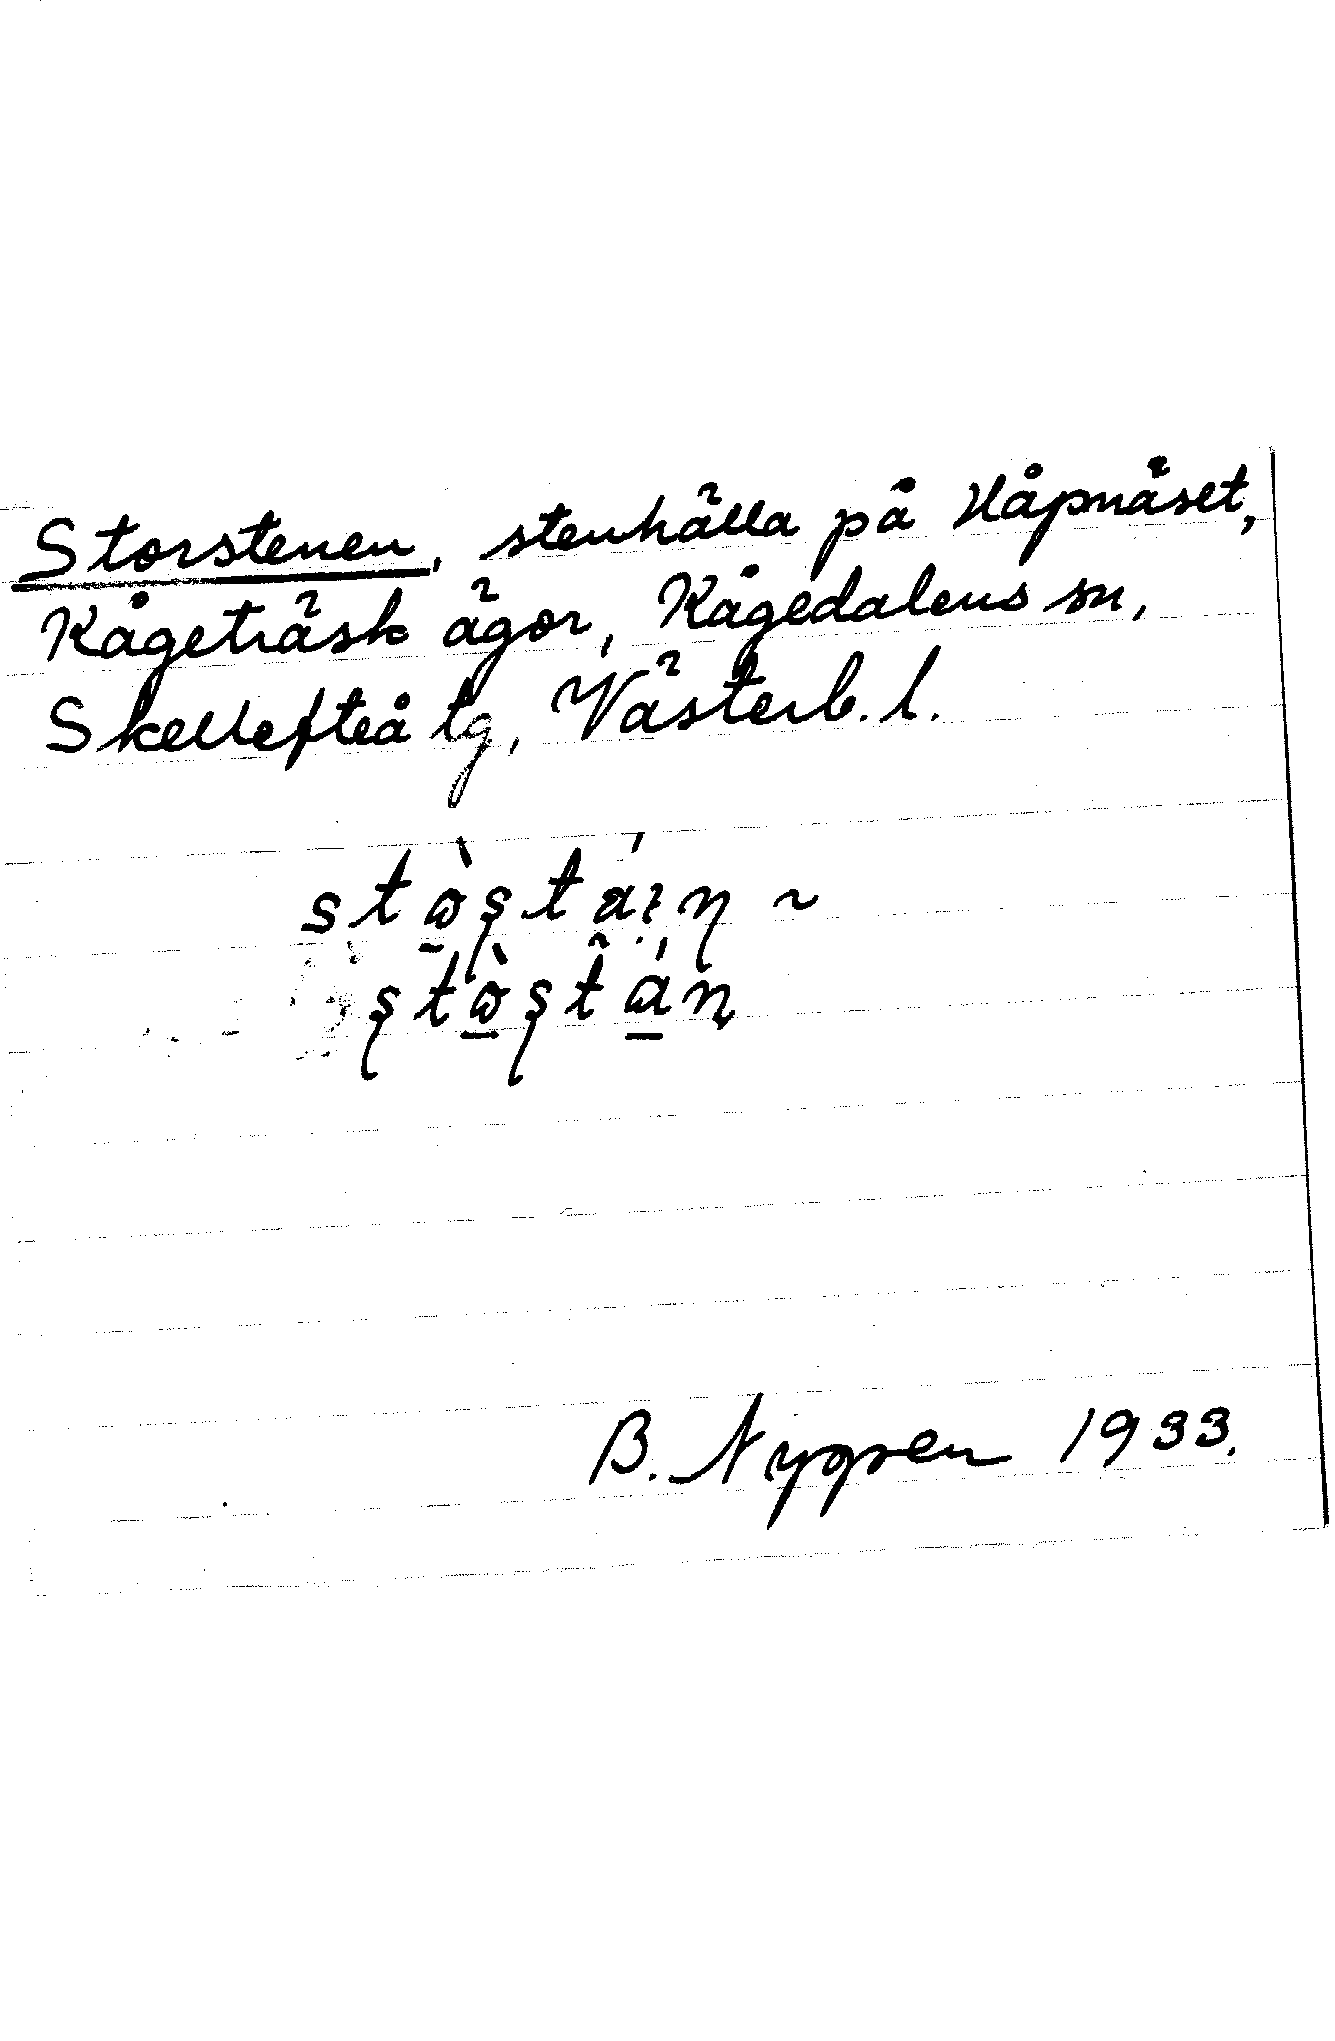 Storstenen, stenhälla på Håpnäset,
Kågeträsk ägor, Kågedalens sn,
Skellefteå tg, Västerb. l.
B. Nygren 1933.